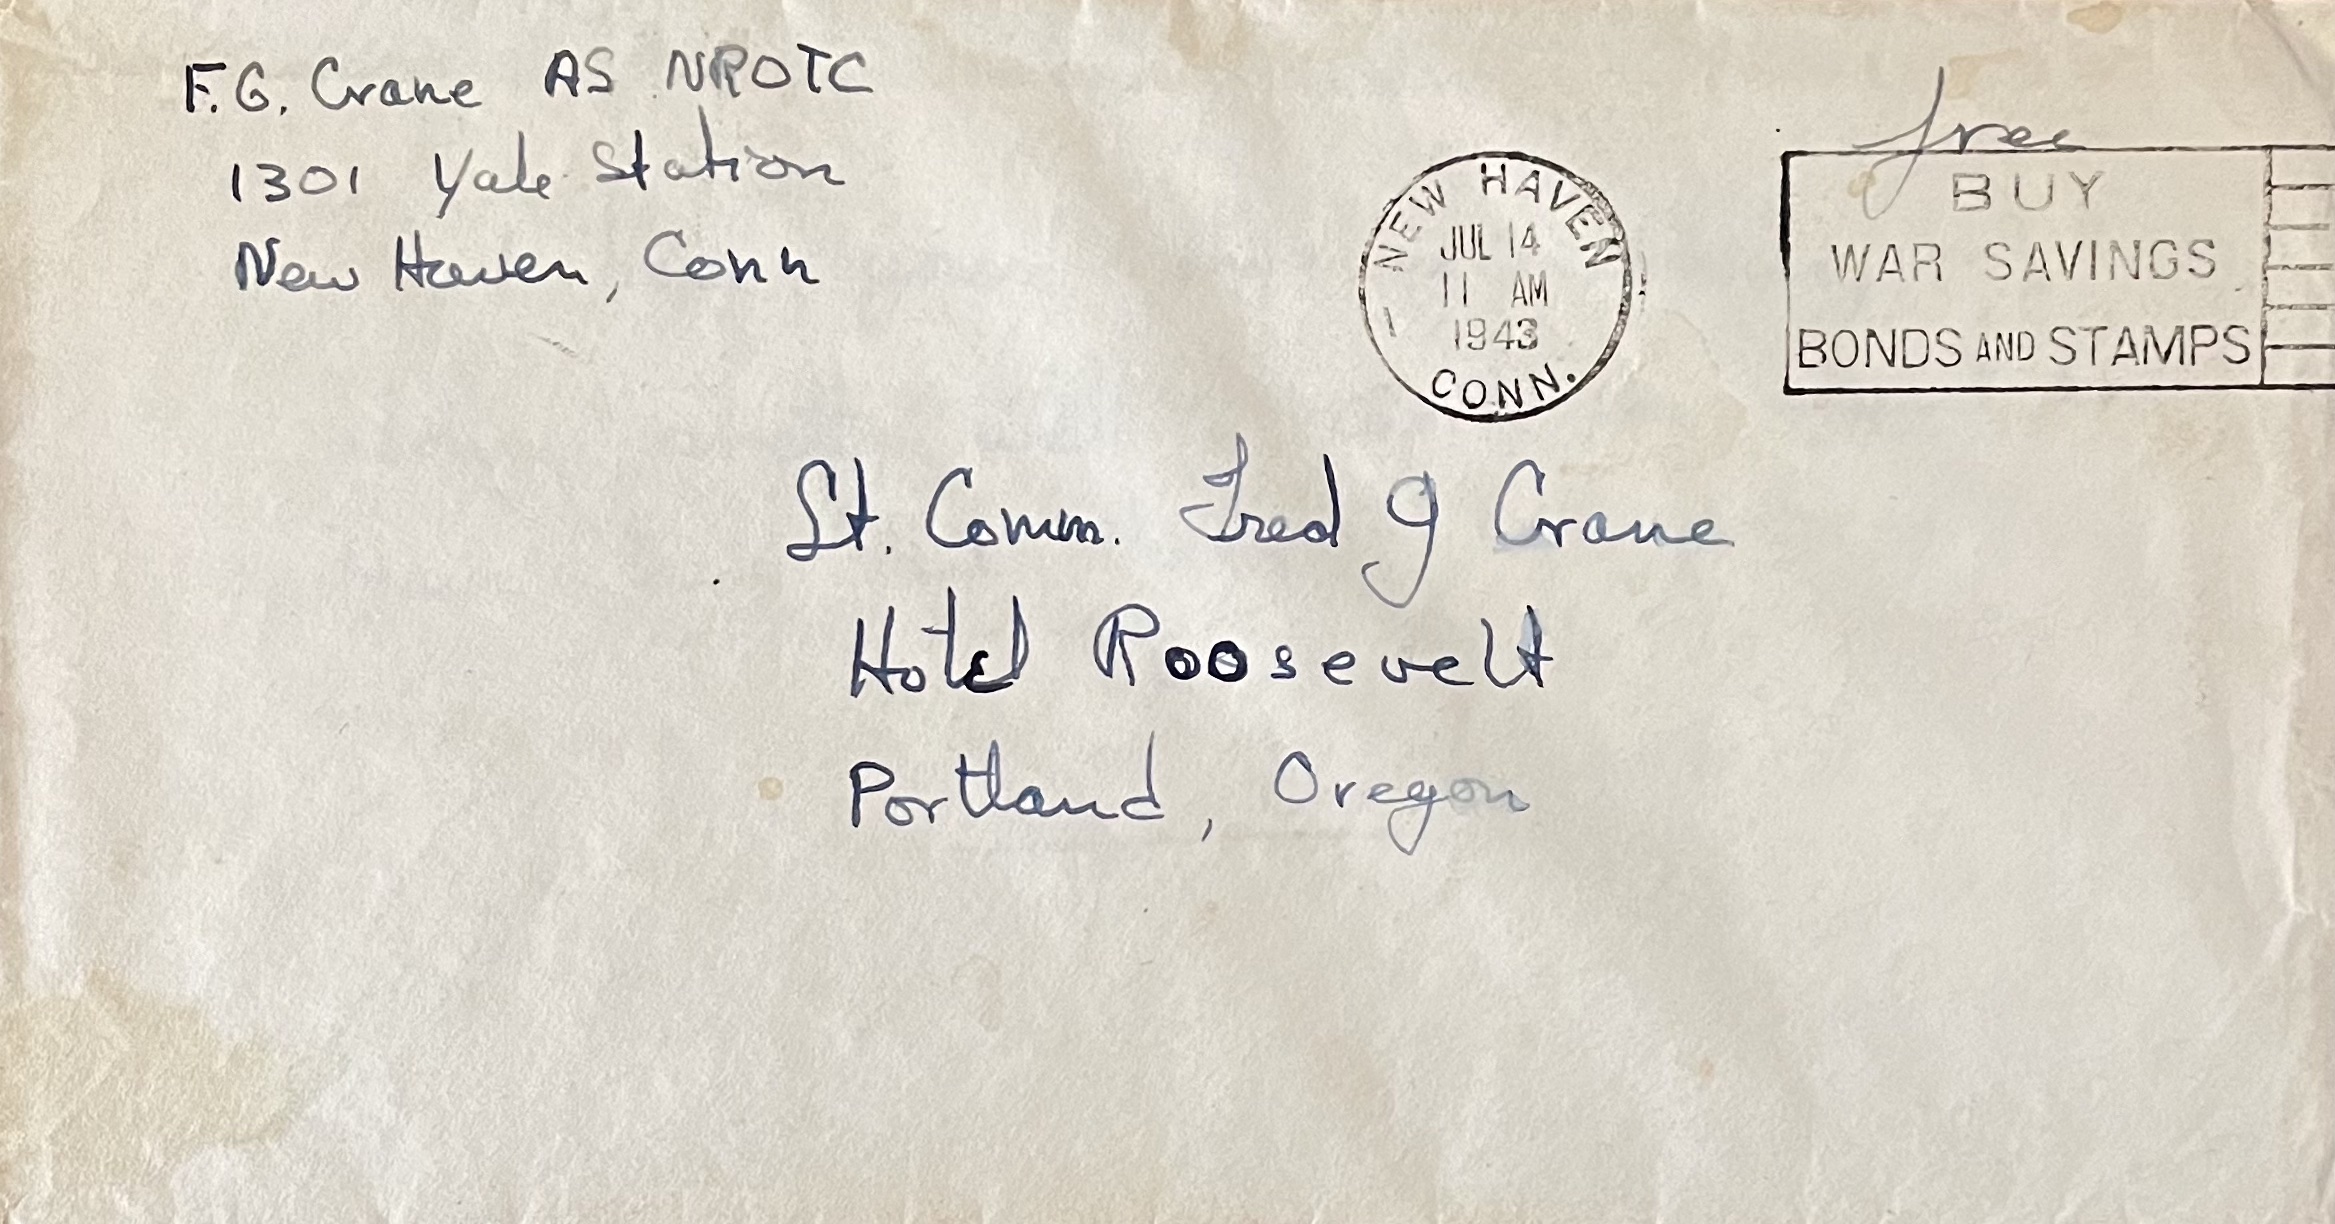 F.G. Crane AS NROTC
1301 Yale Station
New Haven, Conn
free
NEW HAVEN
JUL 14
11 AM
1943
1
CONN.
BUY
WAR SAVINGS
BONDS AND STAMPS
Lt. Comm. Fred G Crane
Hotel Roosevelt
Portland, Oregon